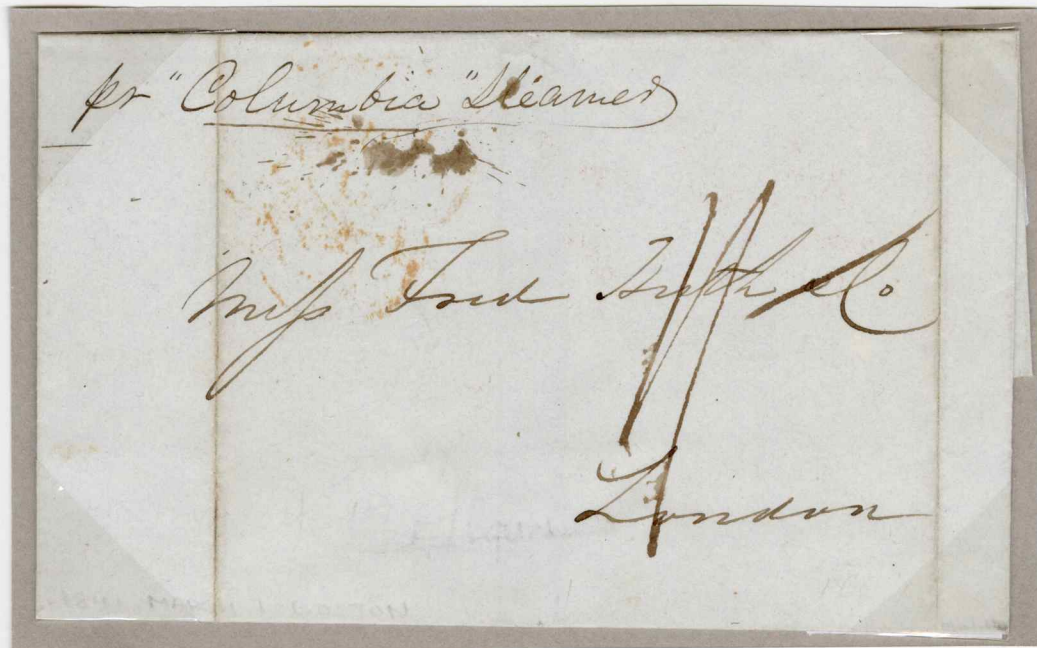 pr "Columbia" Steamer
Mess Fred Huth & Co
London